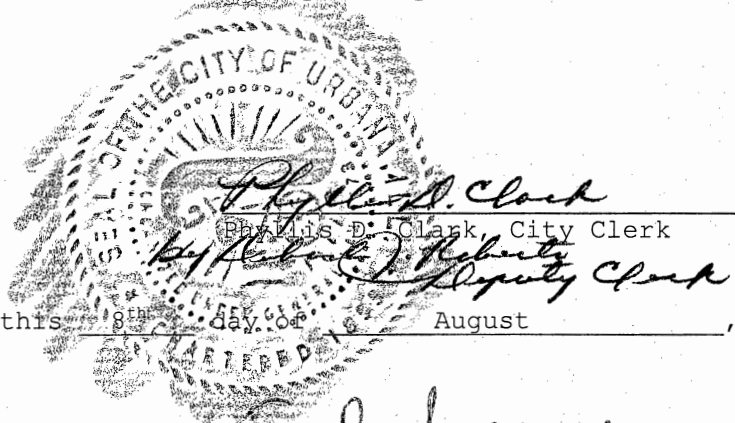 SEAL OF THE CITY OF URBANA
Phyllis D. Clark
Phyllis D. Clark, City Clerk
by J. Roberts
Deputy Clerk
this 8th day of August,
CHARTERED